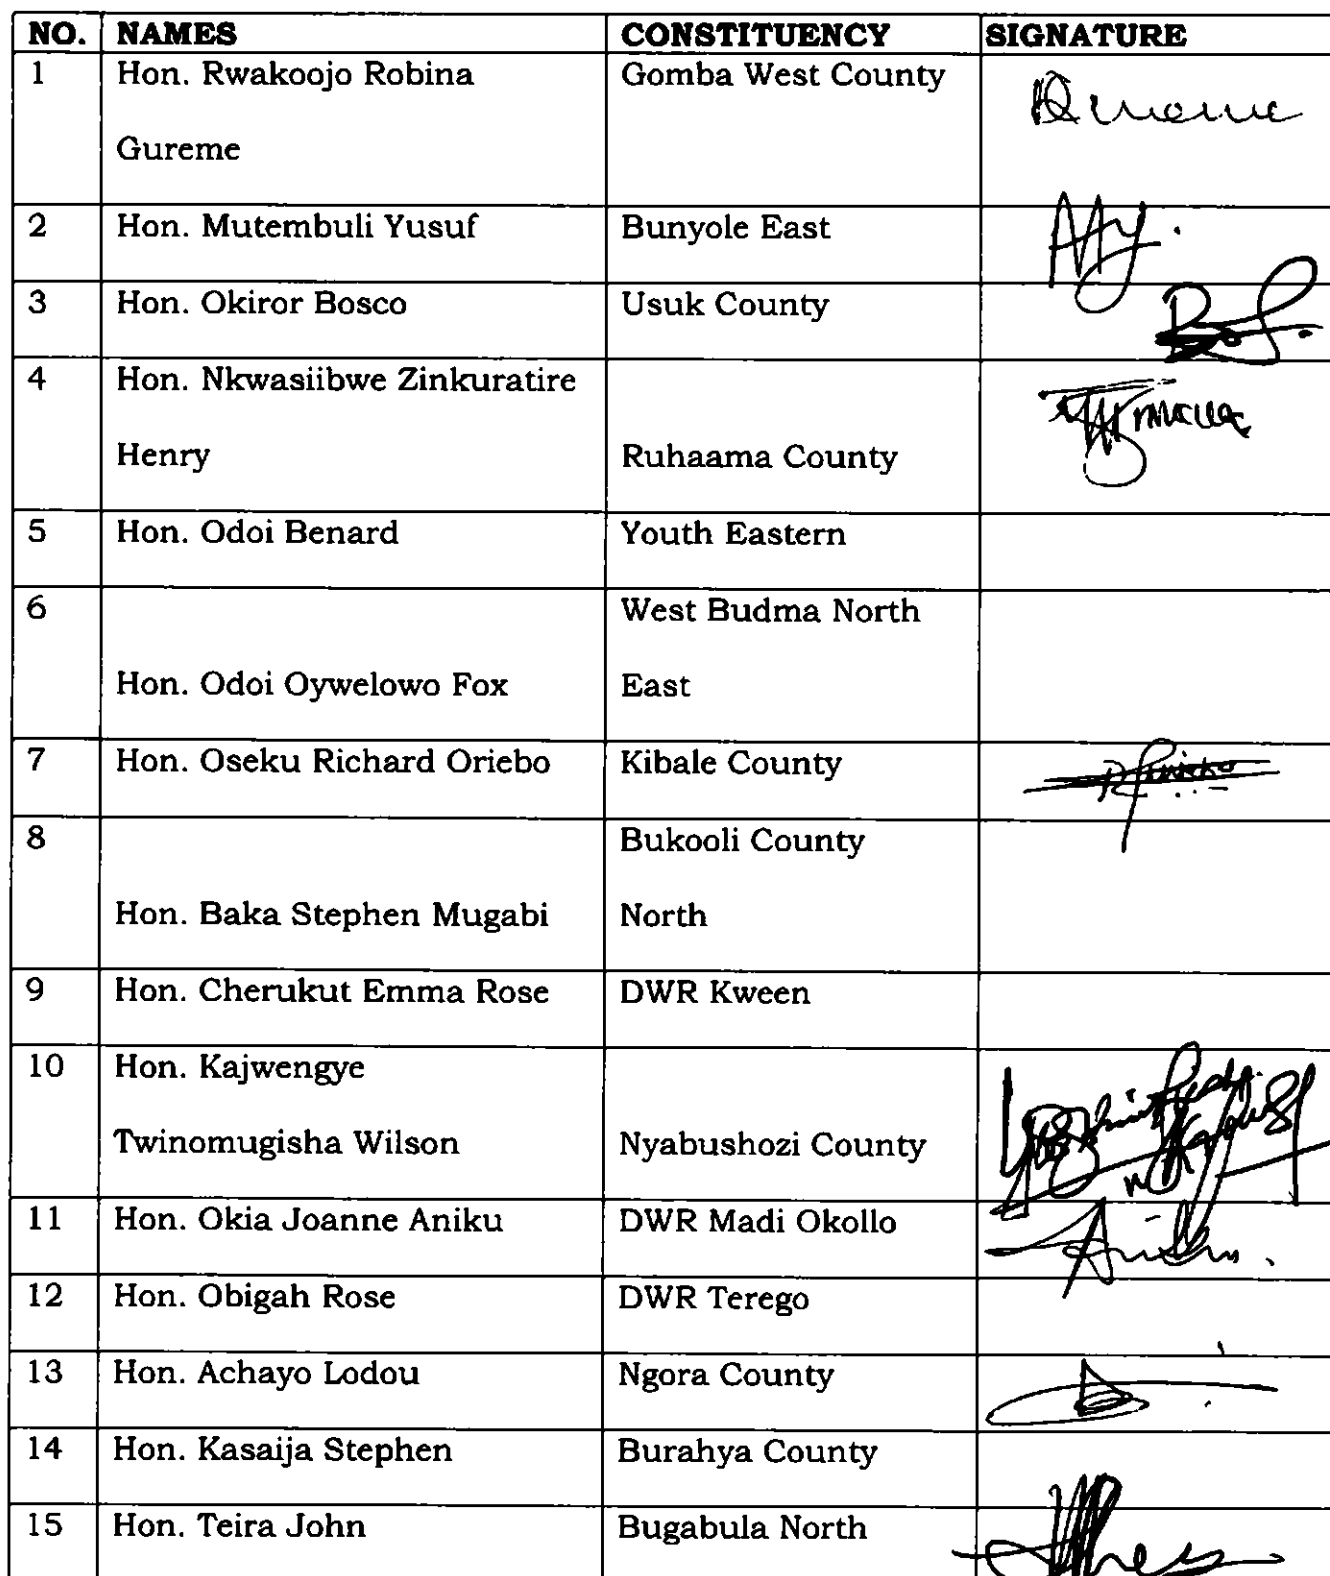 NO. NAMES CONSTITUENCY SIGNATURE
1 Hon. Rwakoojo Robina Gomba West County
Gureme
2 Hon. Mutembuli Yusuf Bunyole East
3 Hon. Okiror Bosco Usuk County
4 Hon. Nkwasiibwe Zinkuratire
Henry Ruhaama County
5 Hon. Odoi Benard Youth Eastern
6 West Budma North
Hon. Odoi Oywelowo Fox East
7 Hon. Oseku Richard Oriebo Kibale County
8 Bukooli County
Hon. Baka Stephen Mugabi North
9 Hon. Cherukut Emma Rose DWR Kween
10 Hon. Kajwengye
Twinomugisha Wilson Nyabushozi County
11 Hon. Okia Joanne Aniku DWR Madi Okollo
12 Hon. Obigah Rose DWR Terego
13 Hon. Achayo Lodou Ngora County
14 Hon. Kasaija Stephen Burahya County
15 Hon. Teira John Bugabula North